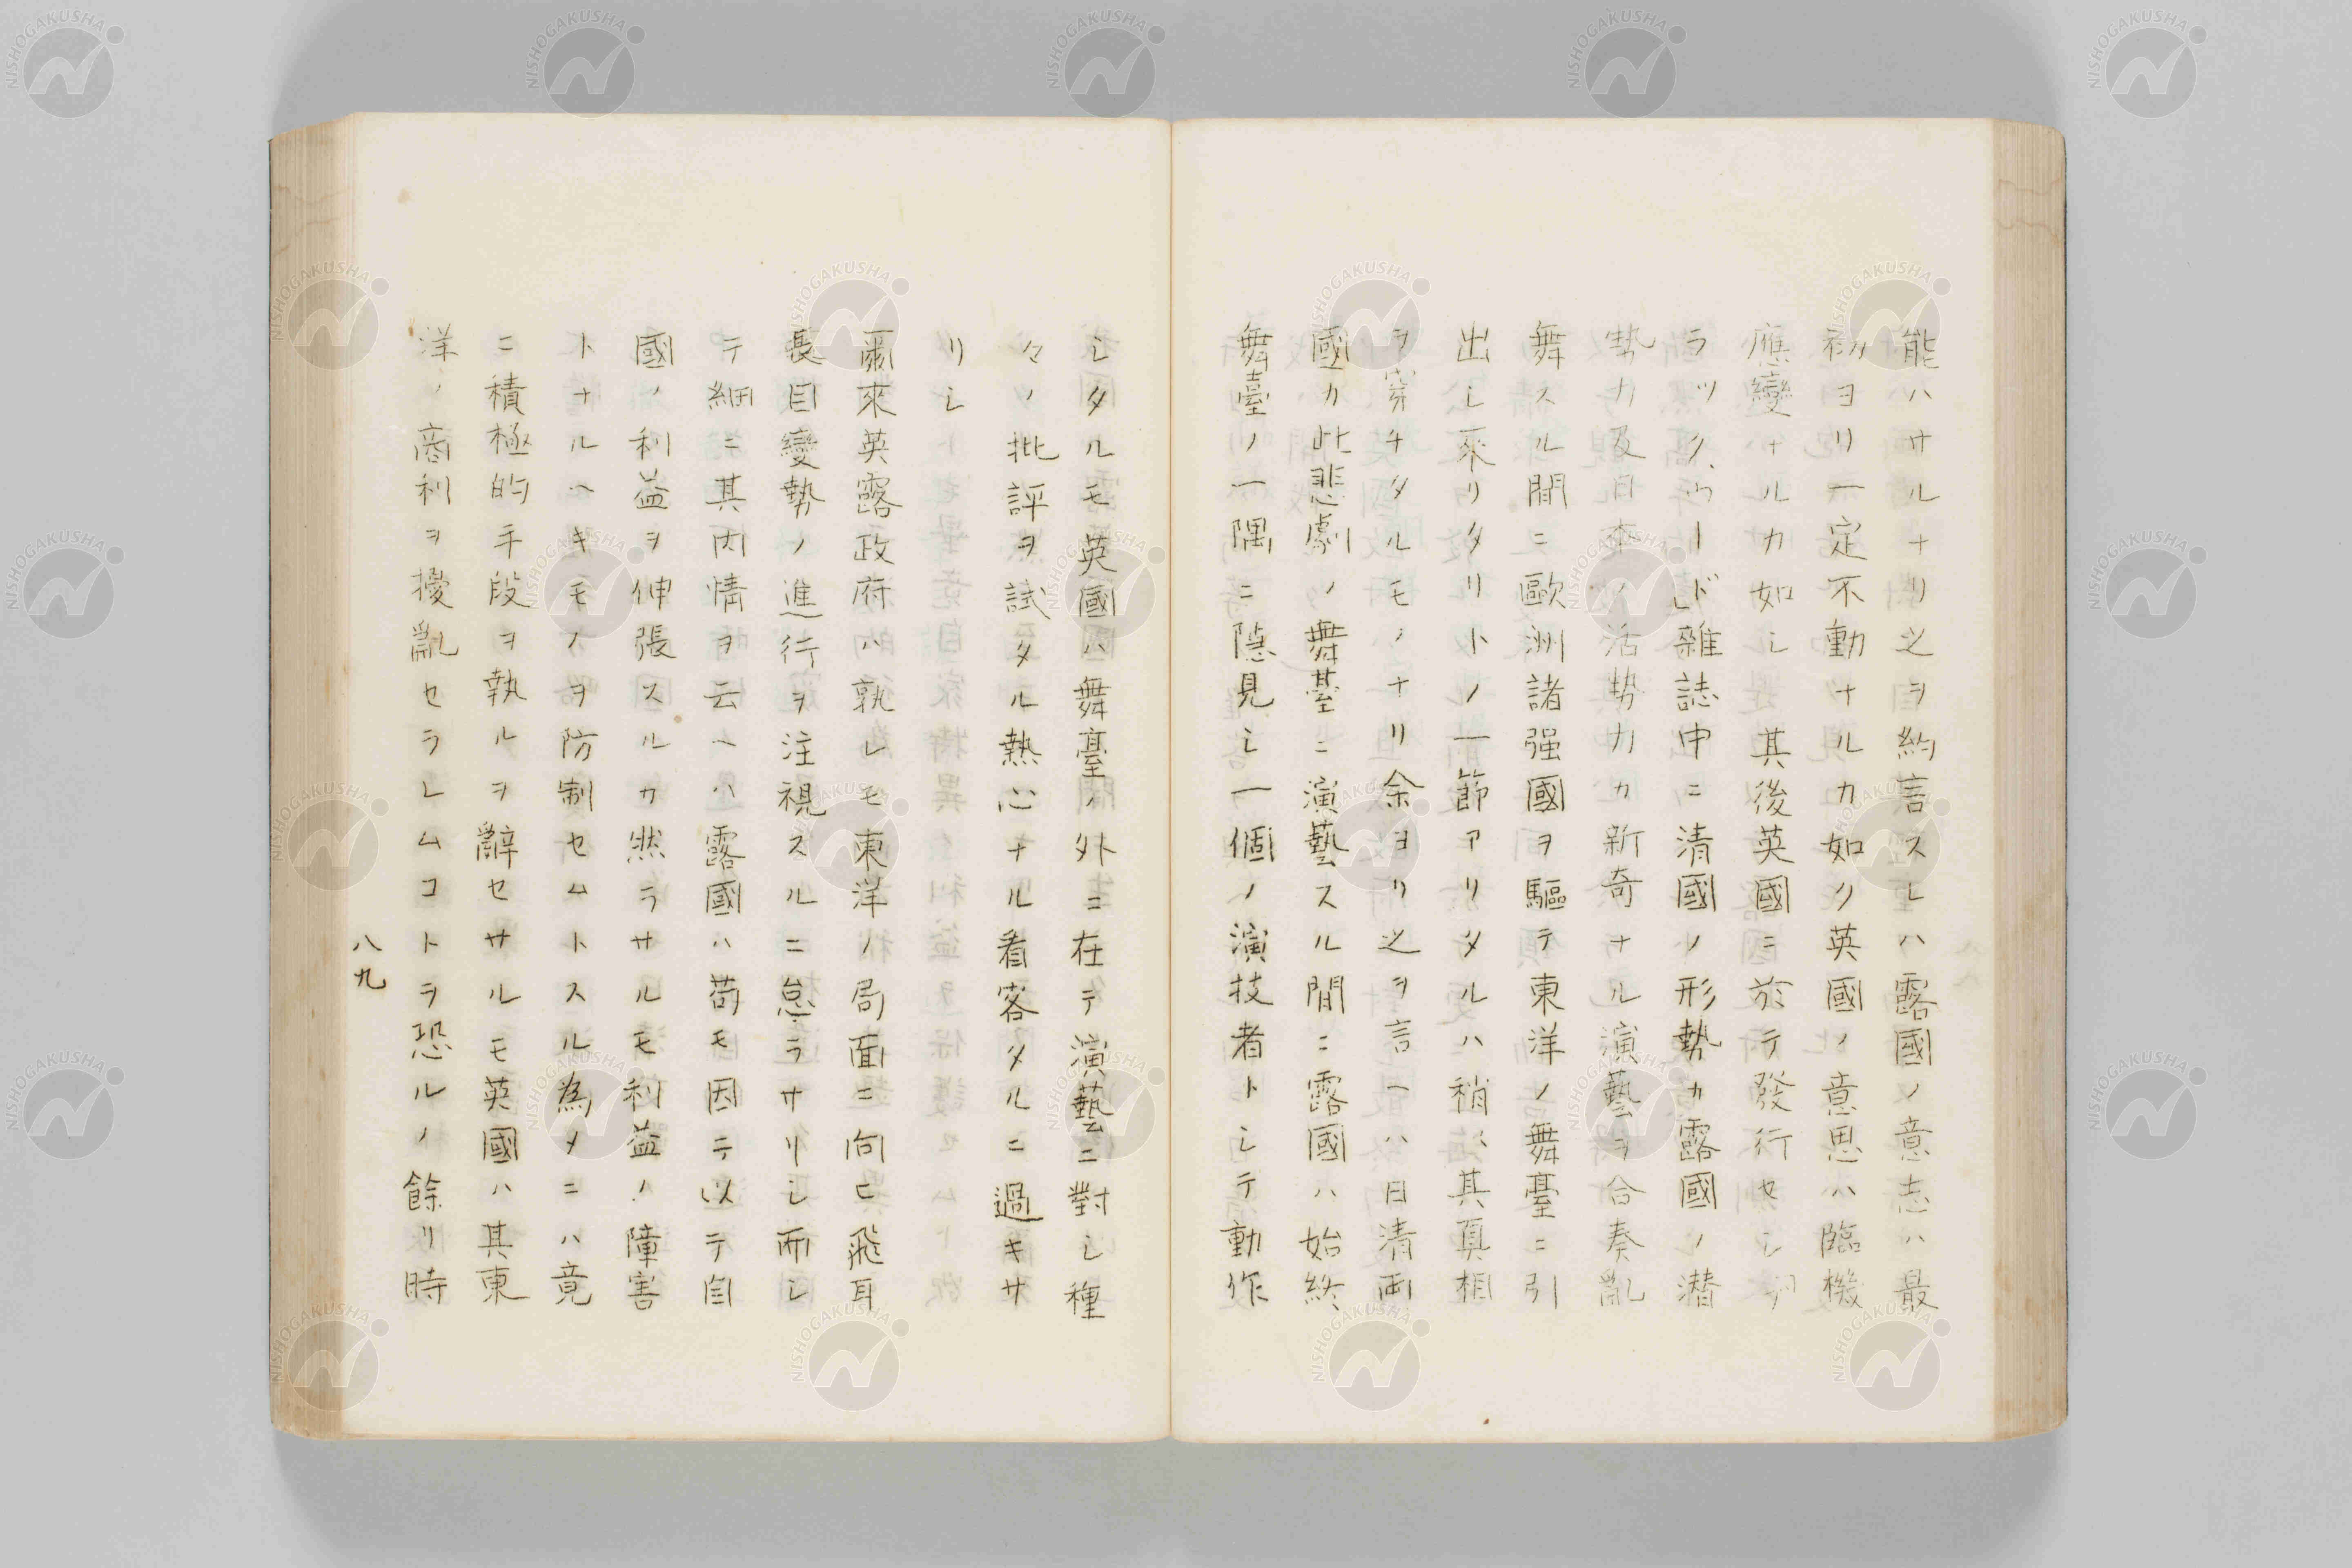 能ハサルナリ之ヲ約言スレハ露國ノ意志ハ最
初ヨリ一定不動ナルカ如ク英國ノ意思ハ臨機
應變ナルカ如シ其後英國ニ於テ發行セシ
ラックウード雜誌中ニ清國ノ形勢カ露國ノ潜
勢力及日本ノ活勢力カ新奇ナル演藝ヲ合奏亂
舞スル間ニ歐洲諸强國ヲ驅テ東洋ノ舞臺ニ引
出シ來リタリトノ一節アリタルハ稍〻其眞相
ヲ穿チタルモノナリ余ヨリ之ヲ言ヘハ日清兩
國カ此悲劇ノ舞臺ニ演藝スル間ニ露國ハ始終
舞臺ノ一隅ニ隱見シ一個ノ演技者トシテ動作
シタルモ英國ハ舞臺ノ外ニ在テ演藝ニ對シ種
々ノ批評ヲ試タル熱心ナル看客タルニ過キサ
リシ
爾來英露政府ハ孰レモ東洋ノ局面ニ向ヒ飛耳
長目變勢ノ進行ヲ注視スルニ怠ラサリシ而シ
テ細ニ其內情ヲ云ヘハ露國ハ苟モ因テ以テ自
國ノ利益ヲ伸張スルカ然ラサルモ利益ノ障害
トナルヘキモノヲ防制セムトスル為メニハ竟
ニ積極的手段ヲ執ルヲ辭セサルモ英國ハ其東
洋ノ商利ヲ擾亂セラレムコトヲ恐ルノ餘リ時
八九
NISHOGAKUSHA